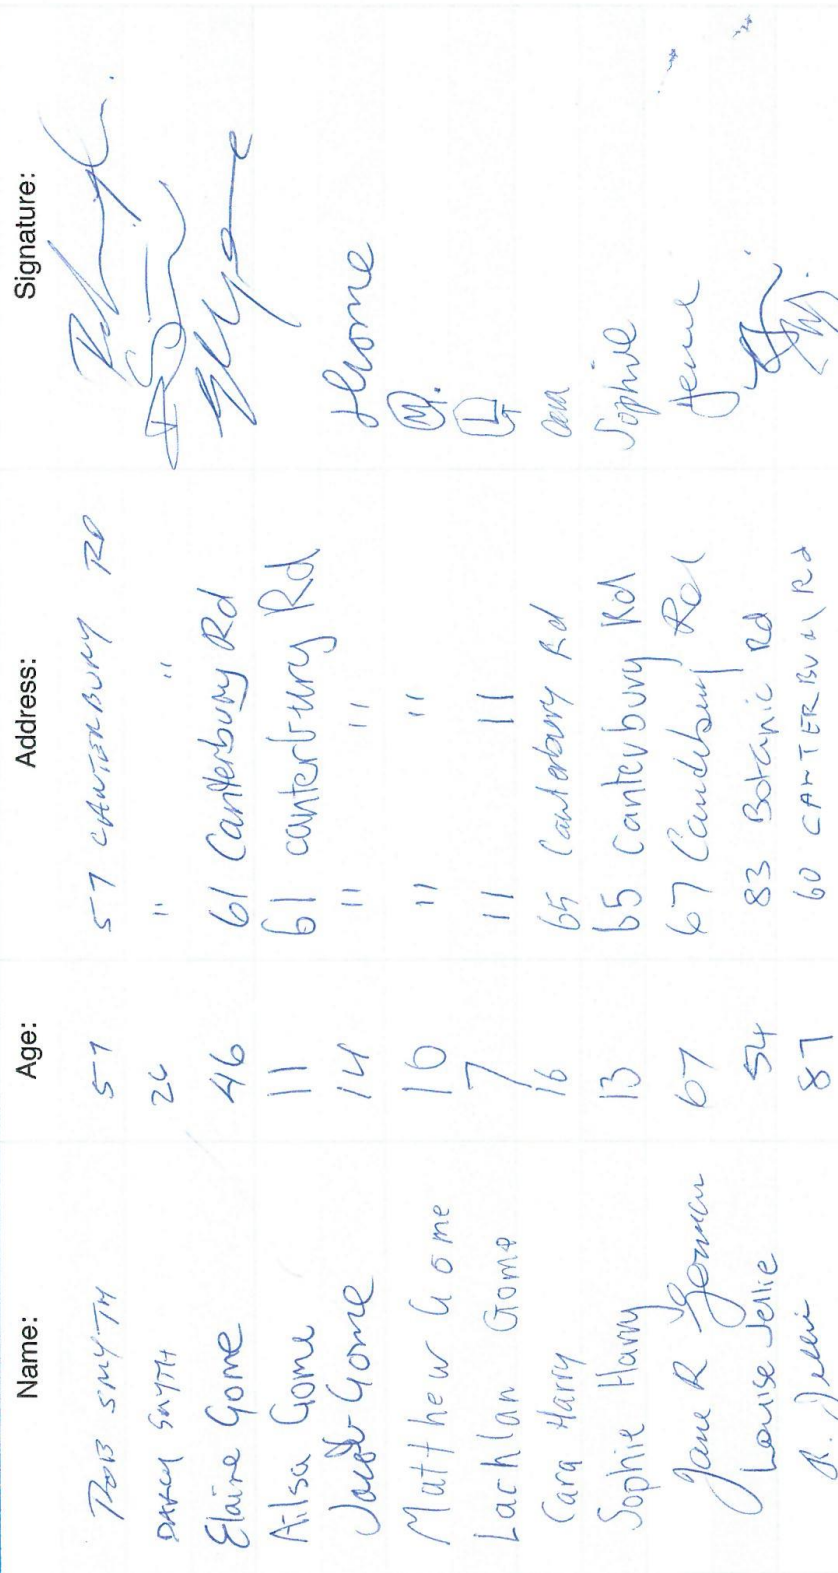 Name: Age: Address: Signature:
ROB SMYTH 57 57 CANTERBURY RD
DARCY SMYTH 26 " "
Elaine Gome 46 61 Canterbury Rd
Ailsa Gome 11 61 canterbury Rd
Jacob Gome 14 " " JGome
Matthew Gome 10 " " M.
Lachlan Gome 7 " " L
Cara Harry 16 65 Canterbury Rd Cara
Sophie Harry 13 65 Canterbury Rd Sophie
Jane R 67 67 Canterbury Rd
Louise Jellie 54 83 Botanic Rd
R. Jellie 87 60 CANTERBURY Rd